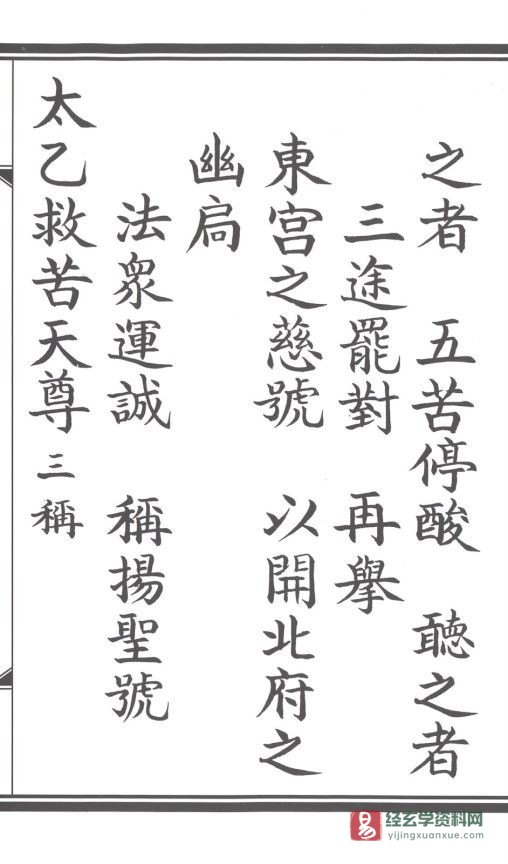 之者　五苦停酸　聽之者
三途罷對　再擧
東宮之慈號　以開北府之
幽扃
法衆運誠　稱揚聖號
太乙救苦天尊三稱
易 经玄学资料网
yijingxuanxue.com